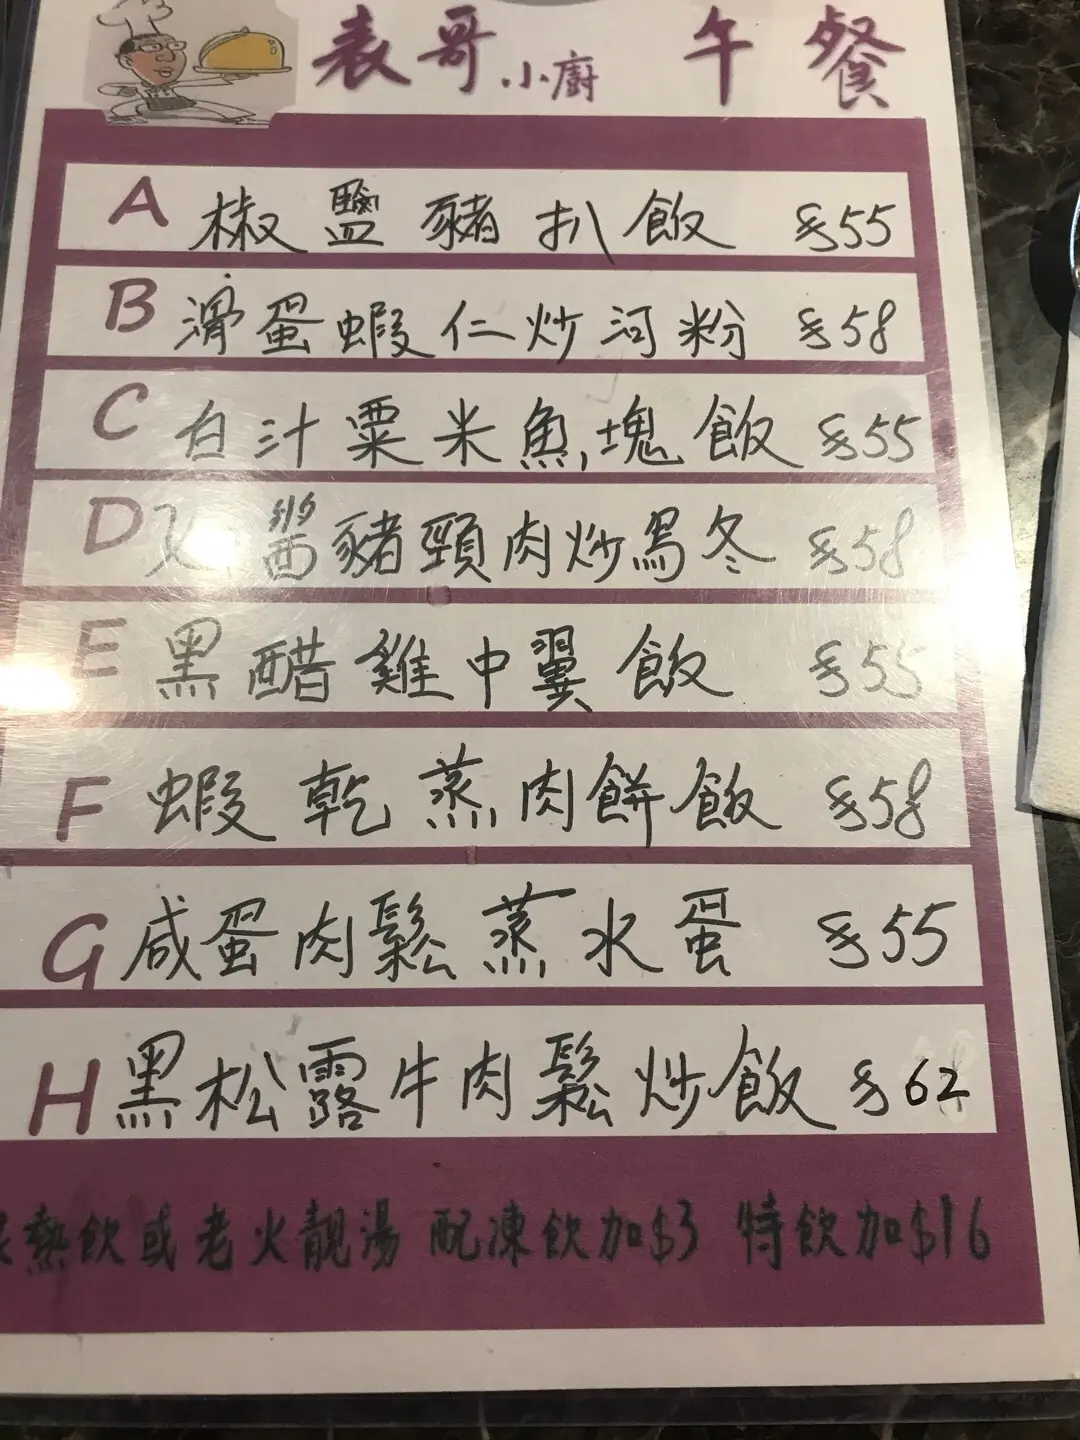 表哥小廚 午餐
A 椒鹽豬扒飯 $55
B 滑蛋蝦仁炒河粉 $58
C 白汁粟米魚塊飯 $55
D 醬豬頸肉炒烏冬 $58
E 黑醋雞中翼飯 $55
F 蝦乾蒸肉餅飯 $58
G 咸蛋肉鬆蒸水蛋 $55
H 黑松露牛肉鬆炒飯 $62
熱飲或老火靚湯 配凍飲加$3 特飲加$16